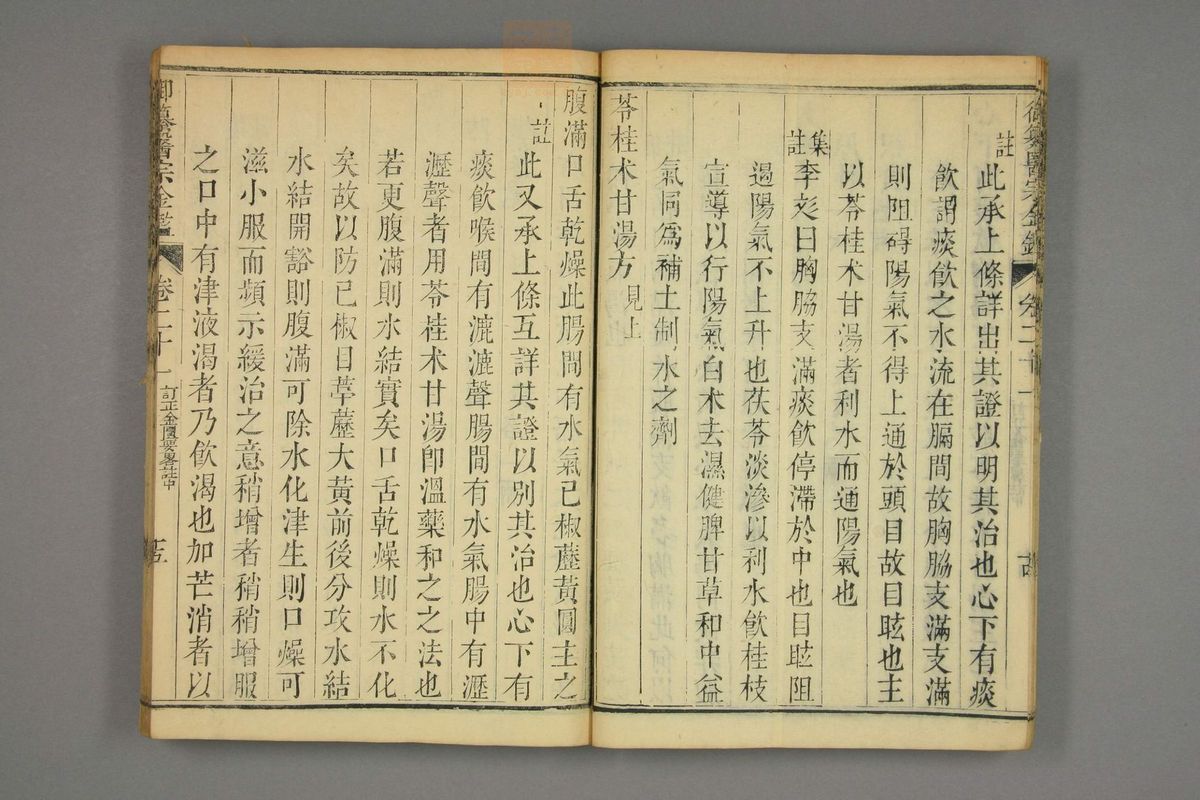 御纂醫宗金鑑
卷二十一
註
此承上條詳出其證以明其治也心下有痰
飲謂痰飲之水流在膈間故胸脇支滿支滿
則阻碍陽氣不得上通於頭目故目眩也主
以苓桂术甘湯者利水而通陽氣也
集註
李彣曰胸脇支滿痰飲停滯於中也目眩阻
遏陽氣不上升也茯苓淡滲以利水飲桂枝
宣導以行陽氣白术去濕健脾甘草和中益
氣同爲補土制水之劑
苓桂术甘湯方 見上
腹滿口舌乾燥此腸間有水氣己椒藶黃圓主之
註
此又承上條互詳其證以別其治也心下有
痰飲喉間有漉漉聲腸間有水氣腸中有瀝
瀝聲者用苓桂术甘湯卽溫藥和之之法也
若更腹滿則水結實矣口舌乾燥則水不化
矣故以防己椒目葶藶大黃前後分攻水結
水結開豁則腹滿可除水化津生則口燥可
滋小服而頻示緩治之意稍增者稍稍增服
之口中有津液渴者乃飲渴也加芒消者以
御纂醫宗金鑑
卷二十一
訂正金匱要畧註中